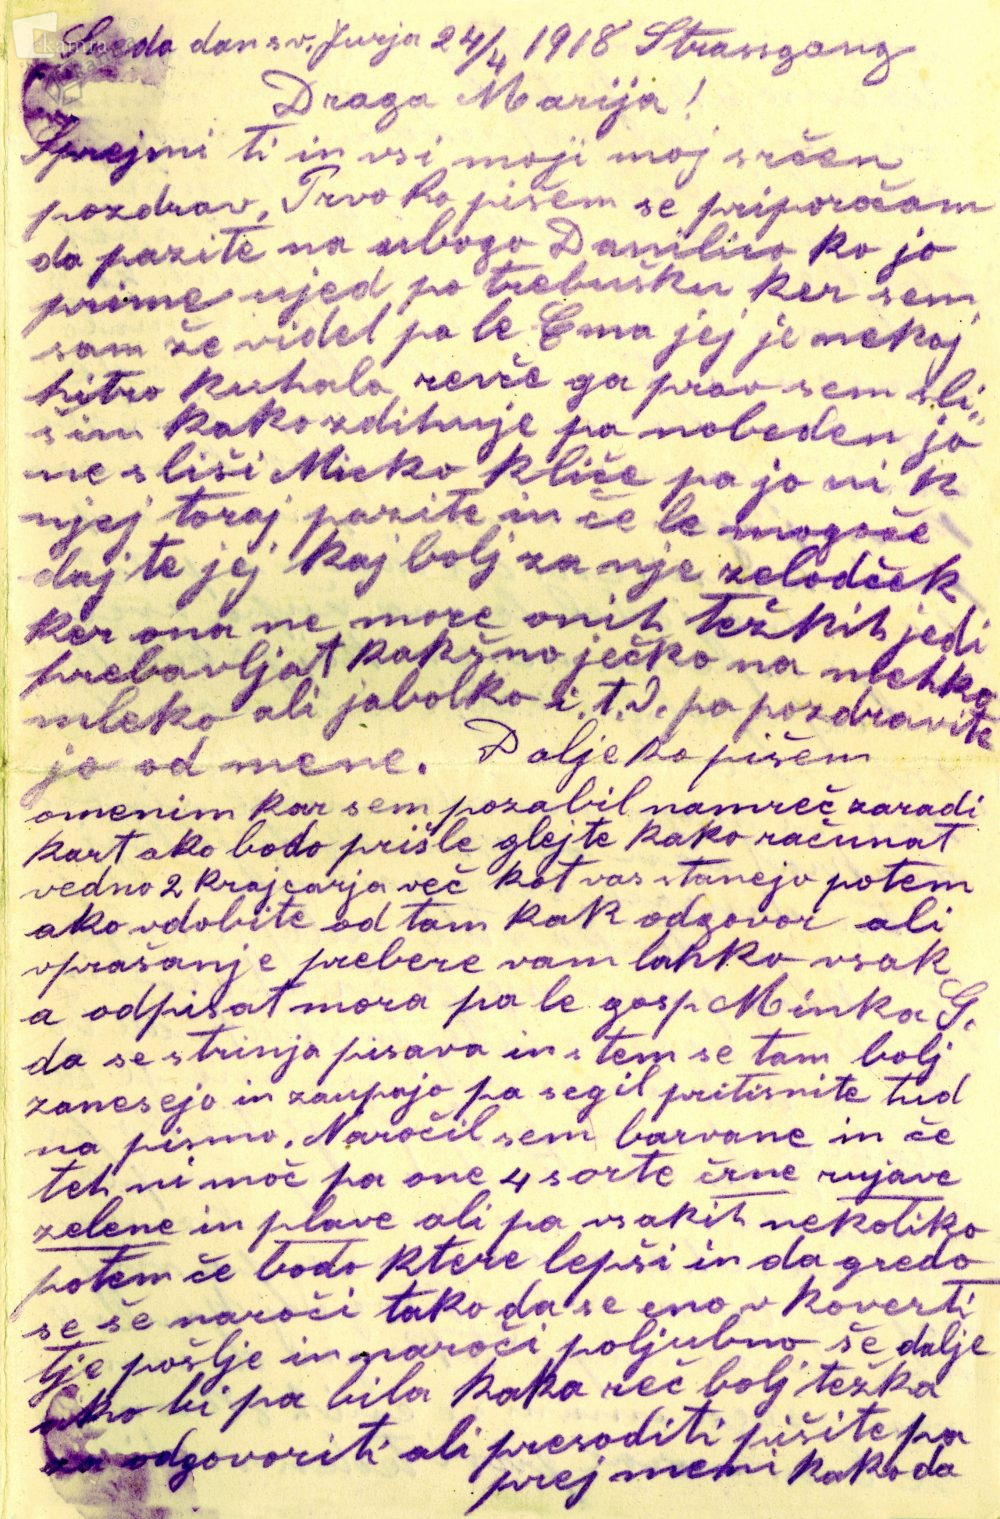 Sreda dan sv. Jurja 24/4 1918 Strassgang
Draga Marija!
Sprejmi ti in vsi moji moj srčen
pozdrav, Prvo ko pišem se priporočam
da pazite na ubogo Danilico ko jo
prime ujed po trebušku ker sem
sam že videl pa le Ema jej je nekaj
hitro kuhala, revše ga prav sem sli„
šim kako zdihuje pa nobeden jo
ne sliši Micko kliče pa jo ni k
njej toraj pazite in če le mogoče
dajte jej kaj bolj za nje zelodček
ker ona ne more onih težkih jedi
prebavljat kakšno ječko na mehko
mleko ali jabolko i. t. d. pa pozdravite
jo od mene. Dalje ko pišem
omenim kar sem pozabil namreč zaradi
kart ako bodo prišle glejte kako računat
vedno 2 krajcarja več kot vas stanejo potem
ako vdobite od tam kak odgovor ali
vprašanje prebere vam lahko vsak
a odpisat mora pa le gosp Minka G.
da se strinja pisava in s tem se tam bolj
zanesejo in zaupajo pa segil pritisnite tud
na pismo. Naročil sem barvane in če
teh ni moč pa one 4 sorte črne rujave
zelene in plave ali pa vsakih nekoliko
potem če bodo ktere lepši in da gredo
se še naroči tako da se eno v koverti
tje pošlje in naroči poljubno še dalje
ako bi pa bila kaka reč bolj težka
za odgovoriti ali presoditi pišite pa
prej meni kako da